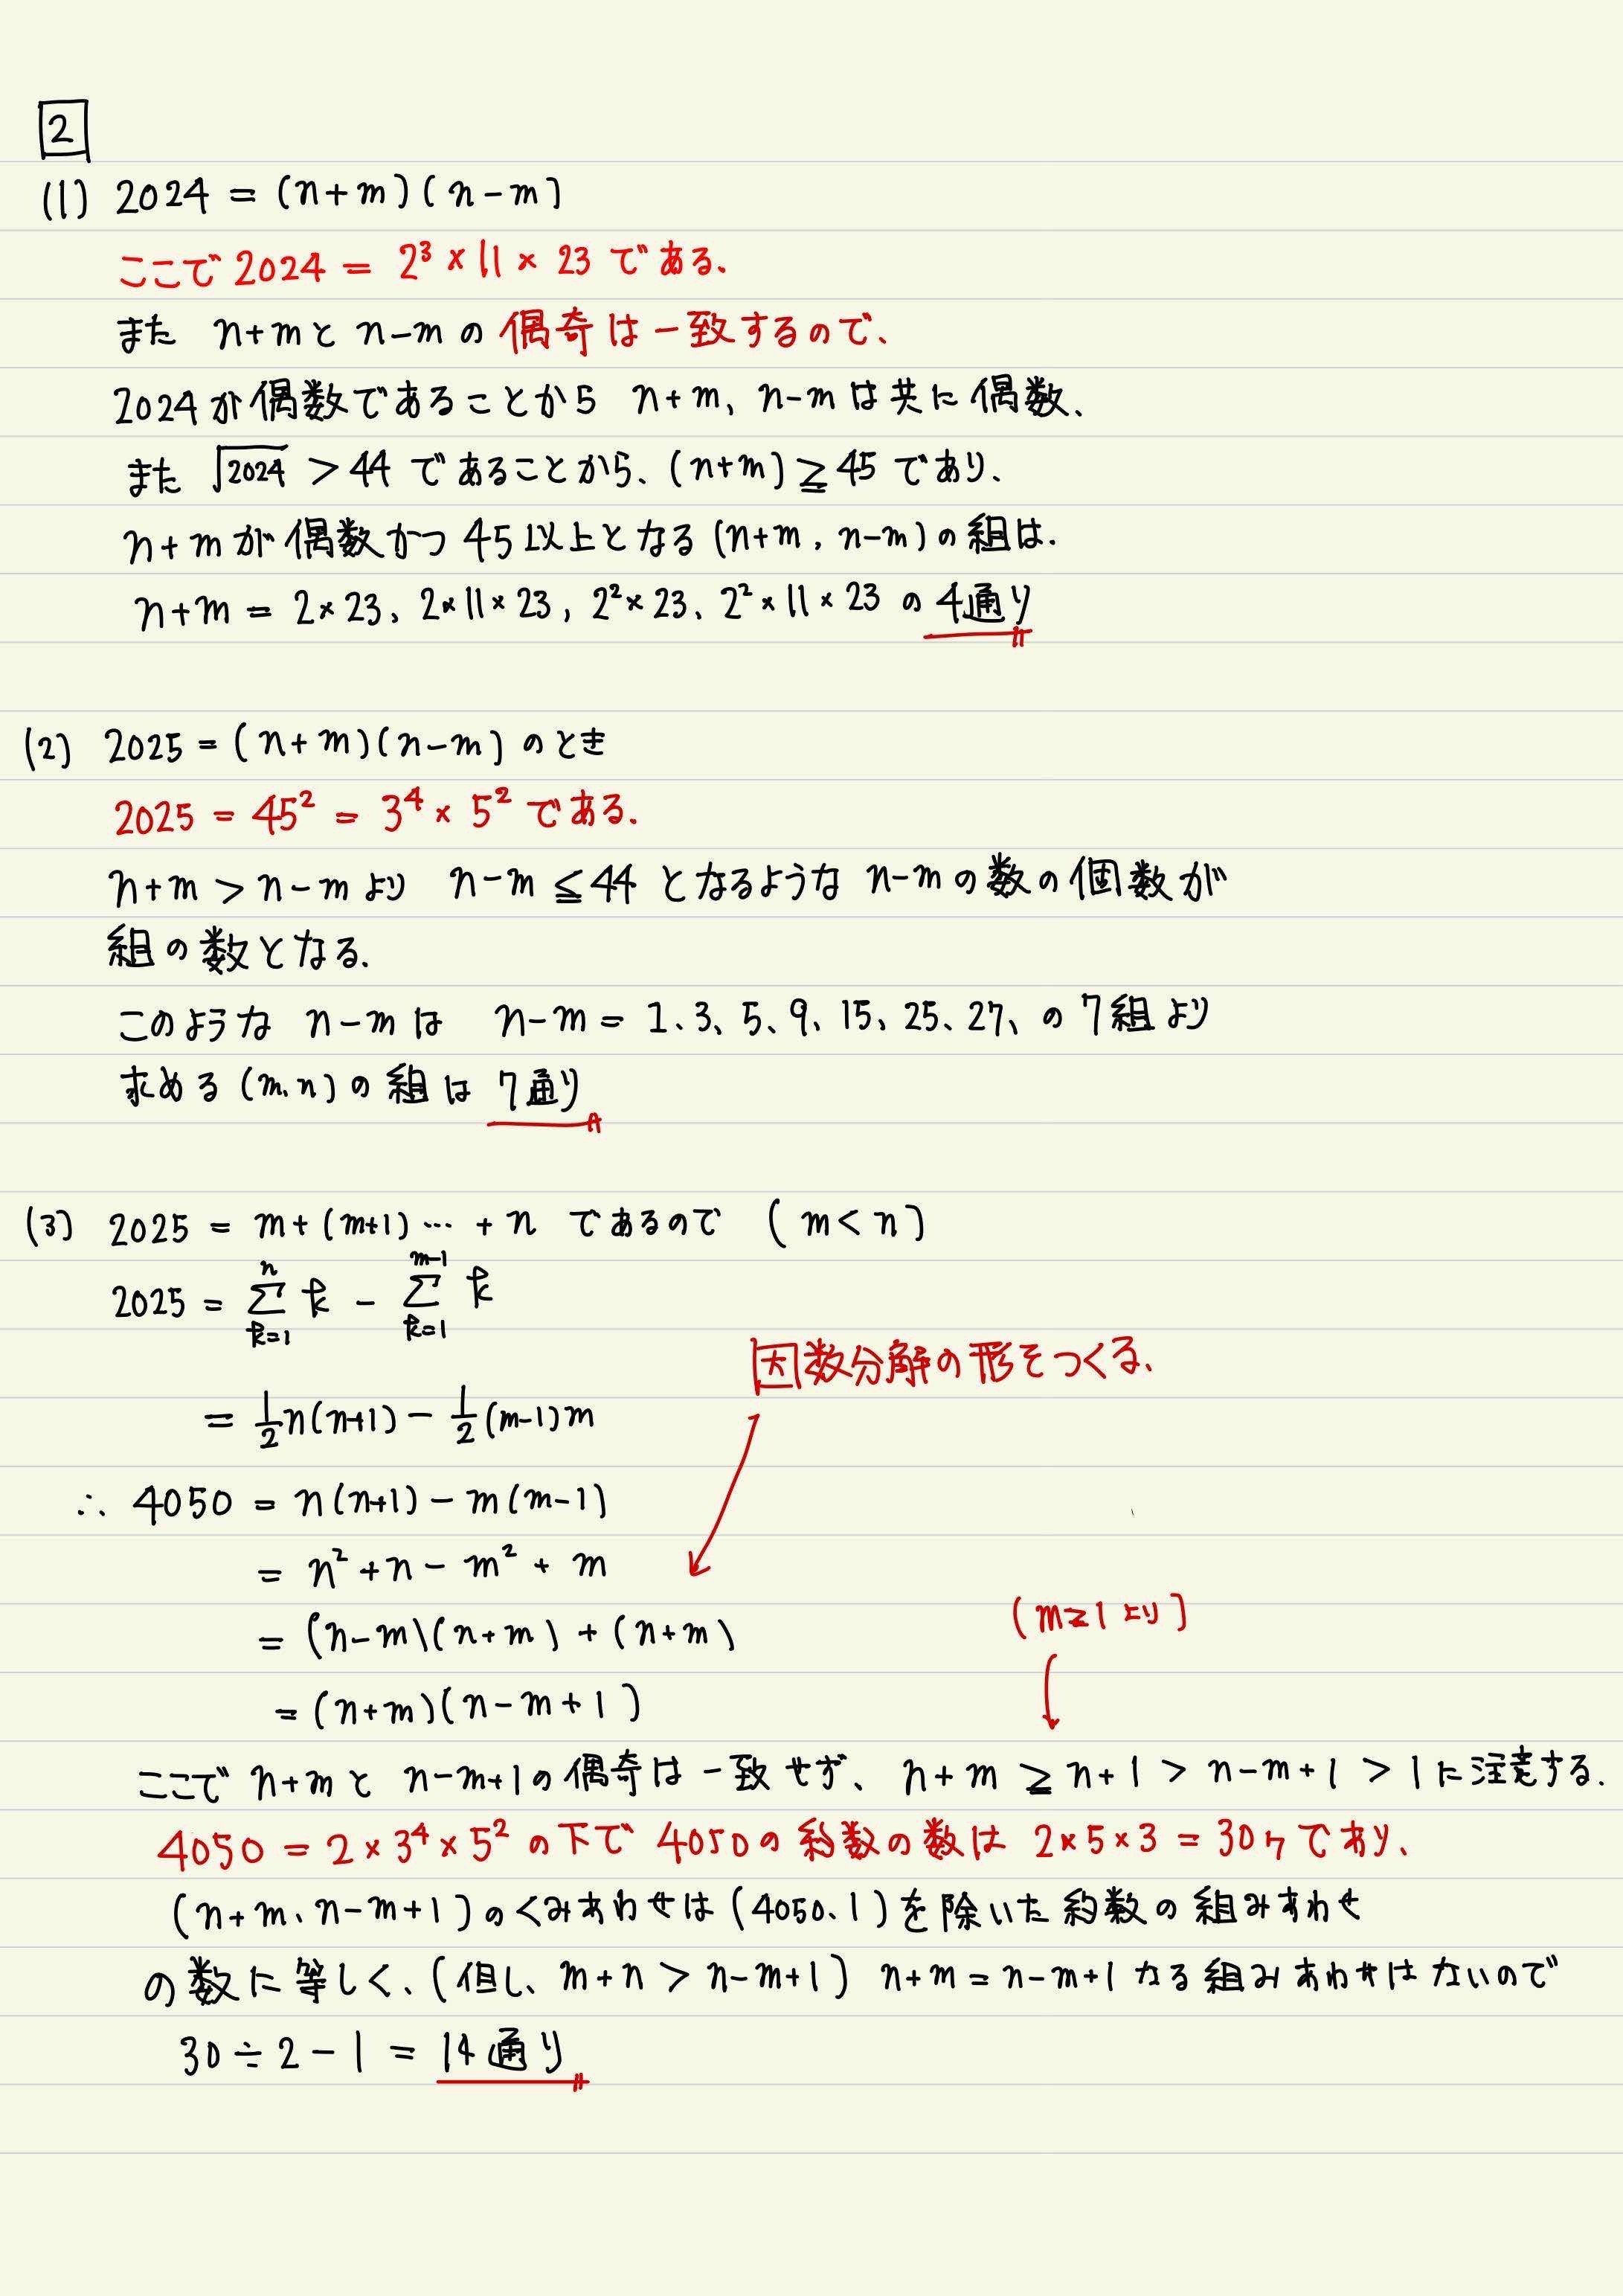 2
(1) 2024 = (n+m)(n-m)
ここで 2024 = 2³×11×23 である.
また n+mとn-mの偶奇は一致するので、
2024が偶数であることから n+m、n-mは共に偶数、
また √2024 > 44 であることから、(n+m)≧45であり、
n+mが偶数かつ45以上となる(n+m, n-m)の組は.
n+m = 2×23、2×11×23, 2²×23、2²×11×23 の4通り
(2) 2025=(n+m)(n-m)のとき
2025 = 45² = 3⁴×5²である.
n+m > n-mより n-m≦44 となるような n-mの数の個数が
組の数となる.
このような n-mは n-m = 1、3、5、9、15、25、27、の7組より
求める(m、n)の組は 7通り
(3) 2025 = m+(m+1)…+n であるので (m<n)
2025 = Σ_{k=1}^{n} k - Σ_{k=1}^{m-1} k
因数分解の形をつくる、
= 1/2 n(n+1) - 1/2 (m-1)m
∴ 4050 = n(n+1)-m(m-1)
= n²+n-m²+m
= (n-m)(n+m)+(n+m)
(m≧1より)
= (n+m)(n-m+1)
ここで n+mと n-m+1の偶奇は一致せず、n+m ≧ n+1 > n-m+1 > 1に注意する.
4050 = 2×3⁴×5²の下で 4050の約数の数は 2×5×3 = 30ヶであり、
(n+m、n-m+1)のくみあわせは(4050、1)を除いた約数の組みあわせ
の数に等しく、(但し、m+n > n-m+1) n+m=n-m+1なる組みあわせはないので
30÷2-1 = 14通り